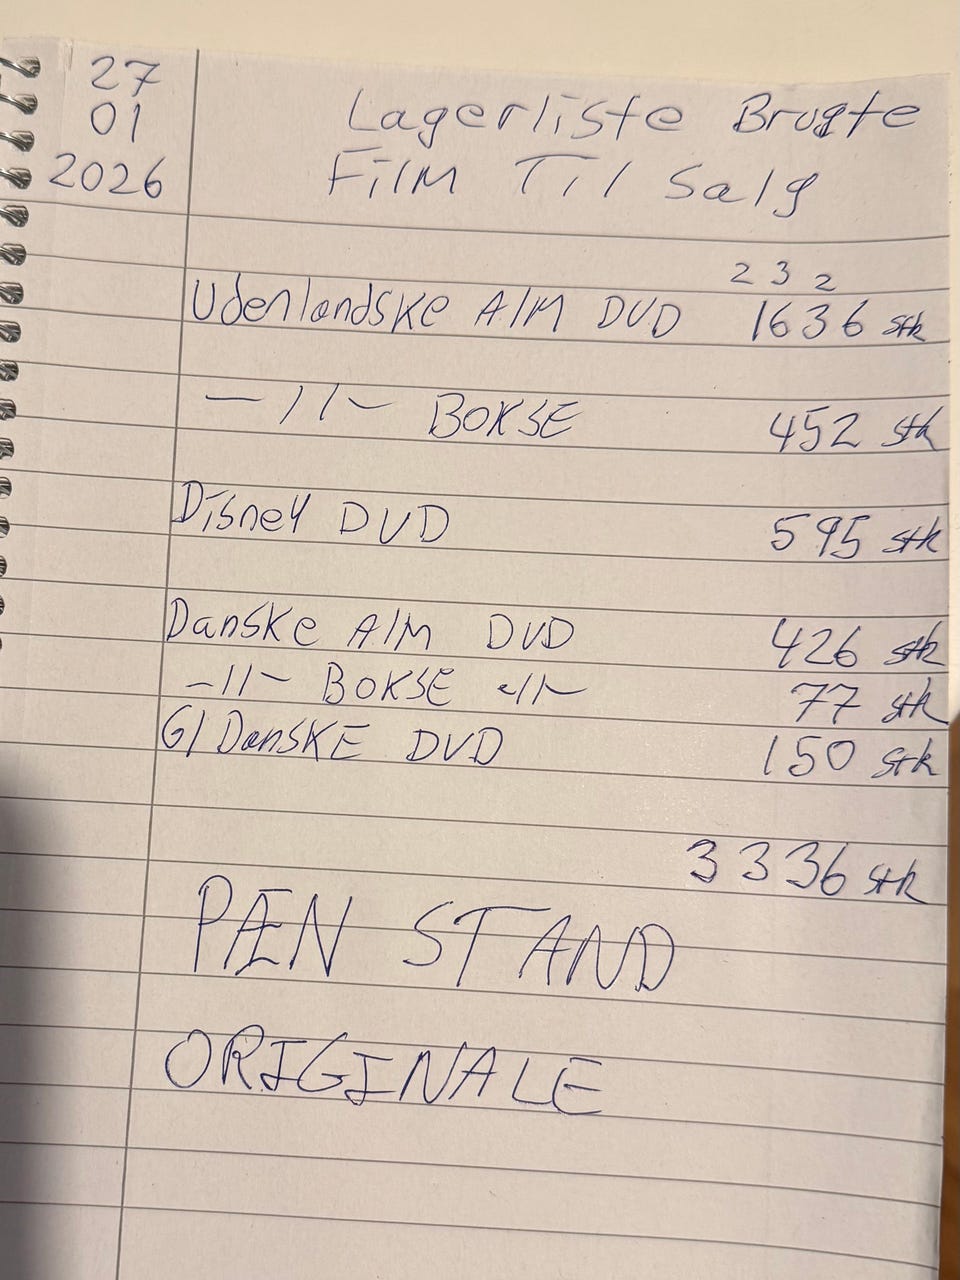 27
01
2026
Lagerliste Brugte
Film Til Salg
2 3 2
Udenlandske Alm DVD 1636 stk
-11- BOKSE 452 stk
Disney DVD 595 stk
Danske Alm DVD 426 stk
-11- BOKSE -11- 77 stk
Gl DANSKE DVD 150 stk
3336 stk
PÆN STAND
ORIGINALE